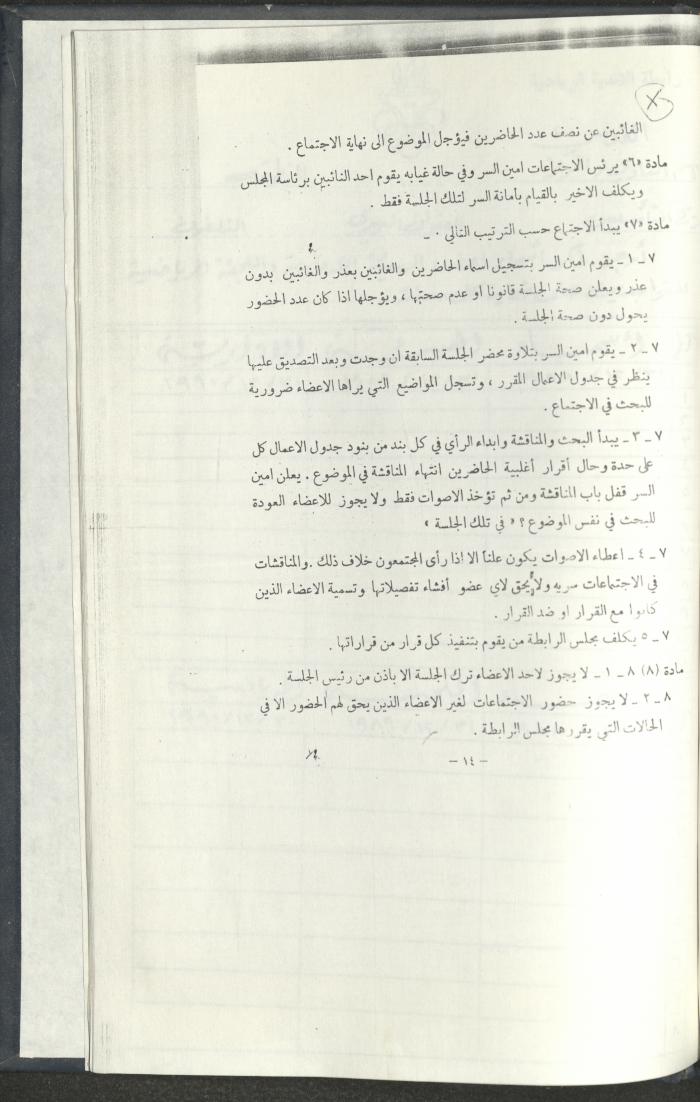 X
الغائبين عن نصف عدد الحاضرين فيؤجل الموضوع الى نهاية الاجتماع .
مادة «٦» يرئس الاجتماعات امين السر وفي حالة غيابه يقوم احد النائبين برئاسة المجلس
ويكلف الاخير بالقيام بامانة السر لتلك الجلسة فقط .
مادة «٧» يبدأ الاجتماع حسب الترتيب التالي . ـ
٧ ـ ١ ـ يقوم امين السر بتسجيل اسماء الحاضرين والغائبين بعذر والغائبين بدون
عذر ويعلن صحة الجلسة قانونا او عدم صحتها ، ويؤجلها اذا كان عدد الحضور
يحول دون صحة الجلسة .
٧ ـ ٢ ـ يقوم امين السر بتلاوة محضر الجلسة السابقة ان وجدت وبعد التصديق عليها
ينظر في جدول الاعمال المقرر ، وتسجل المواضيع التي يراها الاعضاء ضرورية
للبحث في الاجتماع .
٧ ـ ٣ ـ يبدأ البحث والمناقشة وابداء الرأي في كل بند من بنود جدول الاعمال كل
على حدة وحال أقرار أغلبية الحاضرين انتهاء المناقشة في الموضوع . يعلن امين
السر قفل باب المناقشة ومن ثم تؤخذ الاصوات فقط ولا يجوز للاعضاء العودة
للبحث في نفس الموضوع ؟ « في تلك الجلسة »
٧ ـ ٤ ـ اعطاء الاصوات يكون علناً الا اذا رأى المجتمعون خلاف ذلك . والمناقشات
في الاجتماعات سريه ولا يحق لاي عضو أفشاء تفصيلاتها وتسمية الاعضاء الذين
كانوا مع القرار او ضد القرار .
٧ ـ ٥ يكلف مجلس الرابطة من يقوم بتنفيذ كل قرار من قراراتها .
مادة (٨) ٨ ـ ١ ـ لا يجوز لاحد الاعضاء ترك الجلسة الا باذن من رئيس الجلسة .
٨ ـ ٢ ـ لا يجوز حضور الاجتماعات لغير الاعضاء الذين يحق لهم الحضور الا في
الحالات التي يقررها مجلس الرابطة .
ـ ١٤ ـ